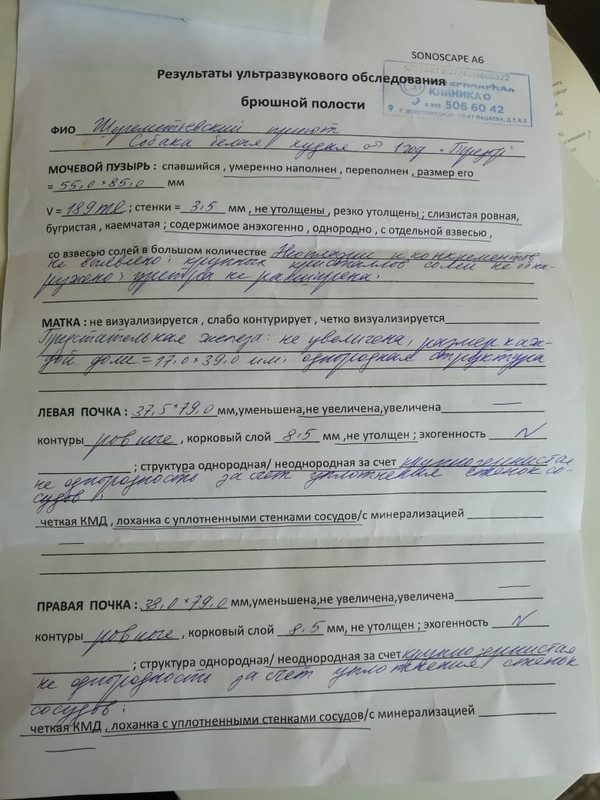 SONOSCAPE A6
Результаты ультразвукового обследования
брюшной полости
КЛИНИКА
506 60 42
ФИО Шереметьевский приют
Собака белая худая 1 год
МОЧЕВОЙ ПУЗЫРЬ : спавшийся , умеренно наполнен , переполнен , размер его
= 55,0*85,0 мм
V = 189 ml ; стенки = 3,5 мм , не утолщены , резко утолщены ; слизистая ровная,
бугристая , каемчатая ; содержимое анэхогенно , однородно , с отдельной взвесью ,
со взвесью солей в большом количестве Неоплазии и конкрементов
не выявлено; крупных кристаллов солей не обна-
ружено; уретра не расширена.
МАТКА : не визуализируется , слабо контурирует , четко визуализируется
Предстательная железа: не увеличена, размер каж-
дой доли = 17,0*39,0 мм; однородная структура
ЛЕВАЯ ПОЧКА : 37,5*79,0 мм,уменьшена,не увеличена,увеличена
контуры ровные , корковый слой 8,5 мм ,не утолщен ; эхогенность N
; структура однородная/ неоднородная за счет крупнозернистая
не однородность за счет уплотнения стенок со-
судов
четкая КМД , лоханка с уплотненными стенками сосудов/с минерализацией
ПРАВАЯ ПОЧКА : 38,0*79,0 мм,уменьшена,не увеличена,увеличена
контуры ровные , корковый слой 8,5 мм, не утолщен ; эхогенность N
; структура однородная/ неоднородная за счет крупнозернистая
не однородность за счет уплотнения стенок
сосудов;
четкая КМД , лоханка с уплотненными стенками сосудов/с минерализацией